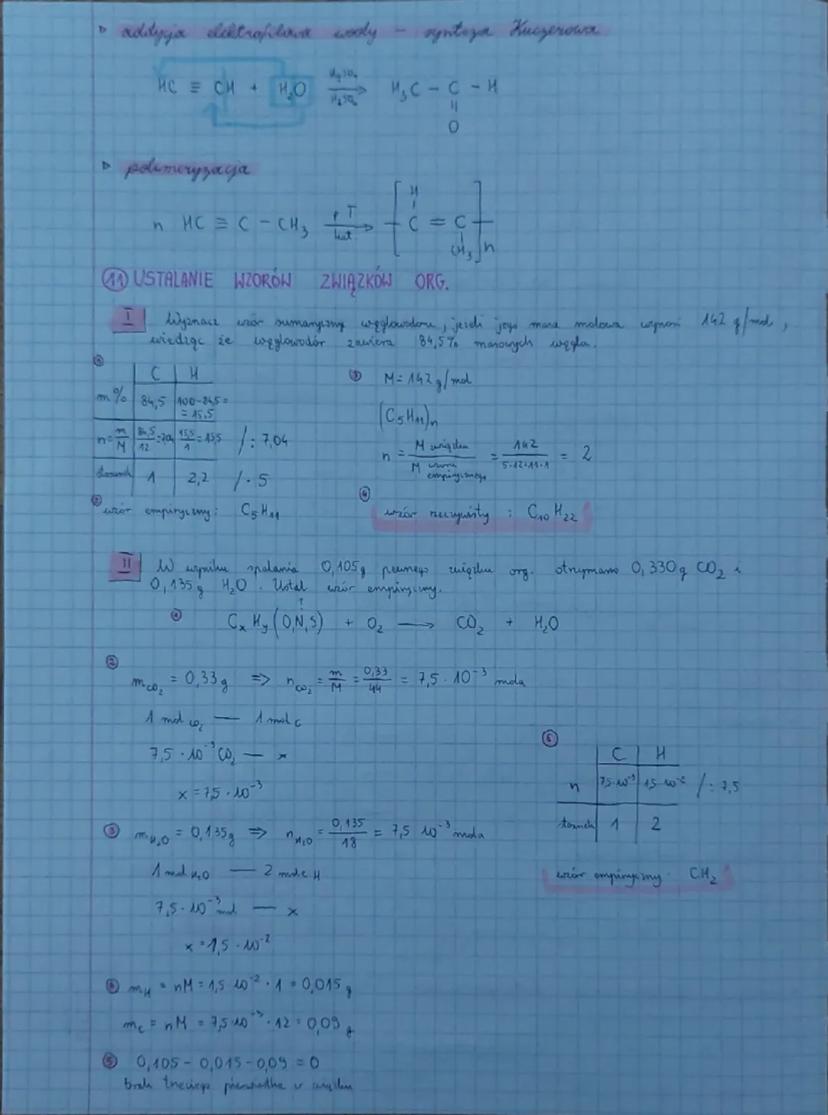 ▷ addycja elektrofilowa wody – synteza Kuczerowa
HC ≡ CH + H₂O →(HgSO₄ / H₂SO₄) H₃C – C – H
||
O
▷ polimeryzacja
n HC ≡ C – CH₃ →(p T / kat) [ H
C = C
CH₃ ]n
⑪ USTALANIE WZORÓW ZWIĄZKÓW ORG.
I Wyznacz wzór sumaryczny węglowodoru, jeżeli jego masa molowa wynosi 142 g/mol,
wiedząc że węglowodór zawiera 84,5% masowych węgla.
①
C H
m% 84,5 100-84,5=
= 15,5
n=m/M 84,5/12=7,04 15,5/1=15,5 /: 7,04
1 2,2 /· 5
② wzór empiryczny: C₅H₁₁
③ M = 142 g/mol
(C₅H₁₁)n
n = M związku / M wzoru empirycznego = 142 / 5·12+11·1 = 2
④
wzór rzeczywisty : C₁₀H₂₂
II W wyniku spalania 0,105g pewnego związku org. otrzymano 0,330g CO₂ i
0,135g H₂O. Ustal wzór empiryczny.
① CₓHᵧ(O,N,S) + O₂ → CO₂ + H₂O
②
m CO₂ = 0,33g => n CO₂ = m/M = 0,33/44 = 7,5 · 10⁻³ mola
1 mol CO₂ — 1 mol C
7,5 · 10⁻³ CO₂ — x
x = 7,5 · 10⁻³
③ m H₂O = 0,135g => n H₂O = 0,135/18 = 7,5 10⁻³ mola
1 mol H₂O — 2 mole H
7,5 · 10⁻³ mol — x
x = 1,5 · 10⁻²
④ m H = nM = 1,5 10⁻² · 1 = 0,015g
m C = nM = 7,5·10⁻³ · 12 = 0,09g
⑤ 0,105 – 0,015 – 0,09 = 0
brak trzeciego pierwiastka w związku
⑥
C H
n 7,5·10⁻³ 1,5·10⁻² /: 7,5
1 2
wzór empiryczny CH₂